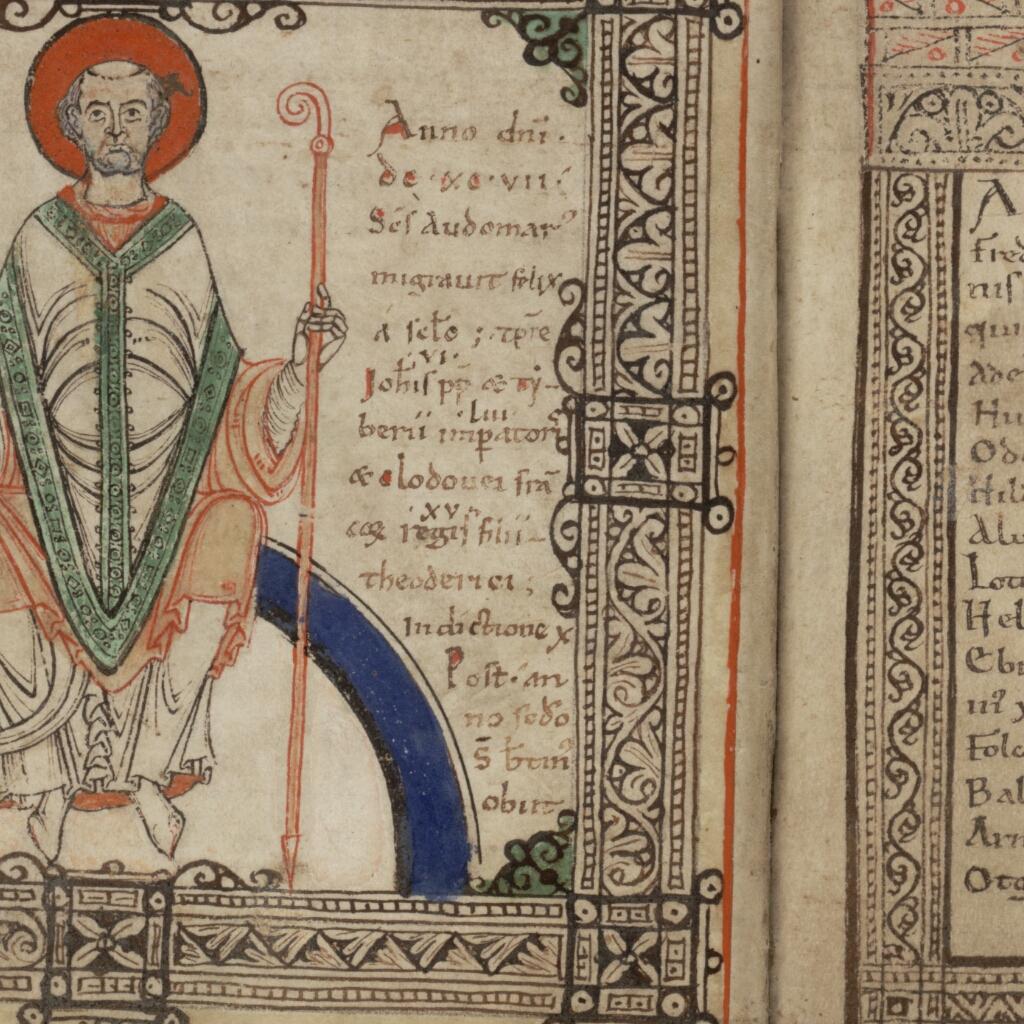 Anno dn̄i·
de·xc·vii·
Sc̄s Audomarꝰ
migrauit felix
a sc̄lo ; tp̄re
vi·
Joh̄is pp̄ & ty-
lvi
berii impatorī
& clodouei frā
xv
regis filii
theoderici ;
Indictione x
Post·an
no sc̄do
s̄ b̄tinꝰ
obiit
A
fred
nis
qui
Ade
Hu
Odo
Hil
Alu
Lot
Hel
Ebr
Folc
Bal
Arn
Otg